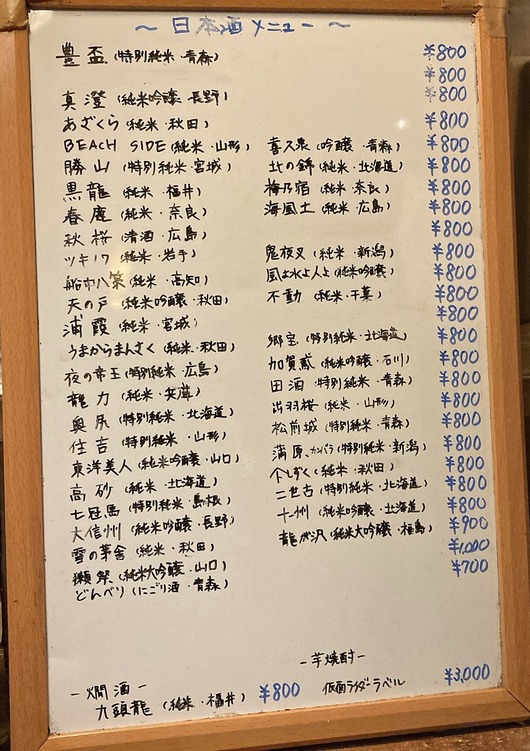 ～ 日本酒メニュー ～
豊盃 (特別純米・青森) ¥800
¥800
真澄 (純米吟醸・長野) ¥800
あざくら (純米・秋田) ¥800
BEACH SIDE (純米・山形) 喜久泉 (吟醸・青森) ¥800
勝山 (特別純米・宮城) 北の錦 (純米・北海道) ¥800
黒龍 (純米・福井) 梅乃宿 (純米・奈良) ¥800
春鹿 (純米・奈良) 海風土 (純米・広島) ¥800
秋桜 (清酒・広島) ¥800
ツキノワ (純米・岩手) 鬼夜叉 (純米・新潟) ¥800
船中八策 (純米・高知) 風は水よ人よ (純米吟醸) ¥800
天の戸 (純米吟醸・秋田) 不動 (純米・千葉) ¥800
浦霞 (純米・宮城) ¥800
うまからまんさく (純米・秋田) 郷宝 (特別純米・北海道) ¥800
夜の帝王 (特別純米・広島) 加賀鳶 (純米吟醸・石川) ¥800
龍力 (純米・兵庫) 田酒 (特別純米・青森) ¥800
奥尻 (特別純米・北海道) 出羽桜 (純米・山形) ¥800
住吉 (特別純米・山形) 松前城 (特別純米・青森) ¥800
東洋美人 (純米吟醸・山口) 蒲原 カンバラ (特別純米・新潟) ¥800
高砂 (純米・北海道) 个しずく (純米・秋田) ¥800
七冠馬 (特別純米・島根) 二世古 (特別純米・北海道) ¥800
大信州 (純米吟醸・長野) 十一州 (純米吟醸・北海道) ¥800
雪の茅舎 (純米・秋田) 龍が沢 (純米大吟醸・福島) ¥900
獺祭 (純米大吟醸・山口) ¥1,000
どんべり (にごり酒・青森) ¥700
- 燗酒 -
九頭龍 (純米・福井) ¥800
- 芋焼酎 -
仮面ライダーラベル ¥3,000